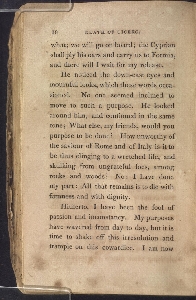 16 DEATH OF CICERO.
what; we will go on board; the Cyprian
shall ply his oars and carry us to Formia,
and there will I wait for my release.
He noticed the down-cast eyes and
mournful looks, which these words occa-
sioned. No one seemed inclined to
move to such a purpose. He looked
around him, and continued in the same
tone; What else, my friends, would you
purpose to be done? How unworthy of
the saviour of Rome and of Italy is it to
be thus clinging to a wretched life, and
skulking from ungrateful foes, among
rocks and woods! No: I have done
my part: All that remains is to die with
firmness and with dignity.
Hitherto, I have been the fool of
passion and inconstancy. My purposes
have wavered from day to day, but it is
time to shake off this irresolution and
trample on this cowardice. I am now